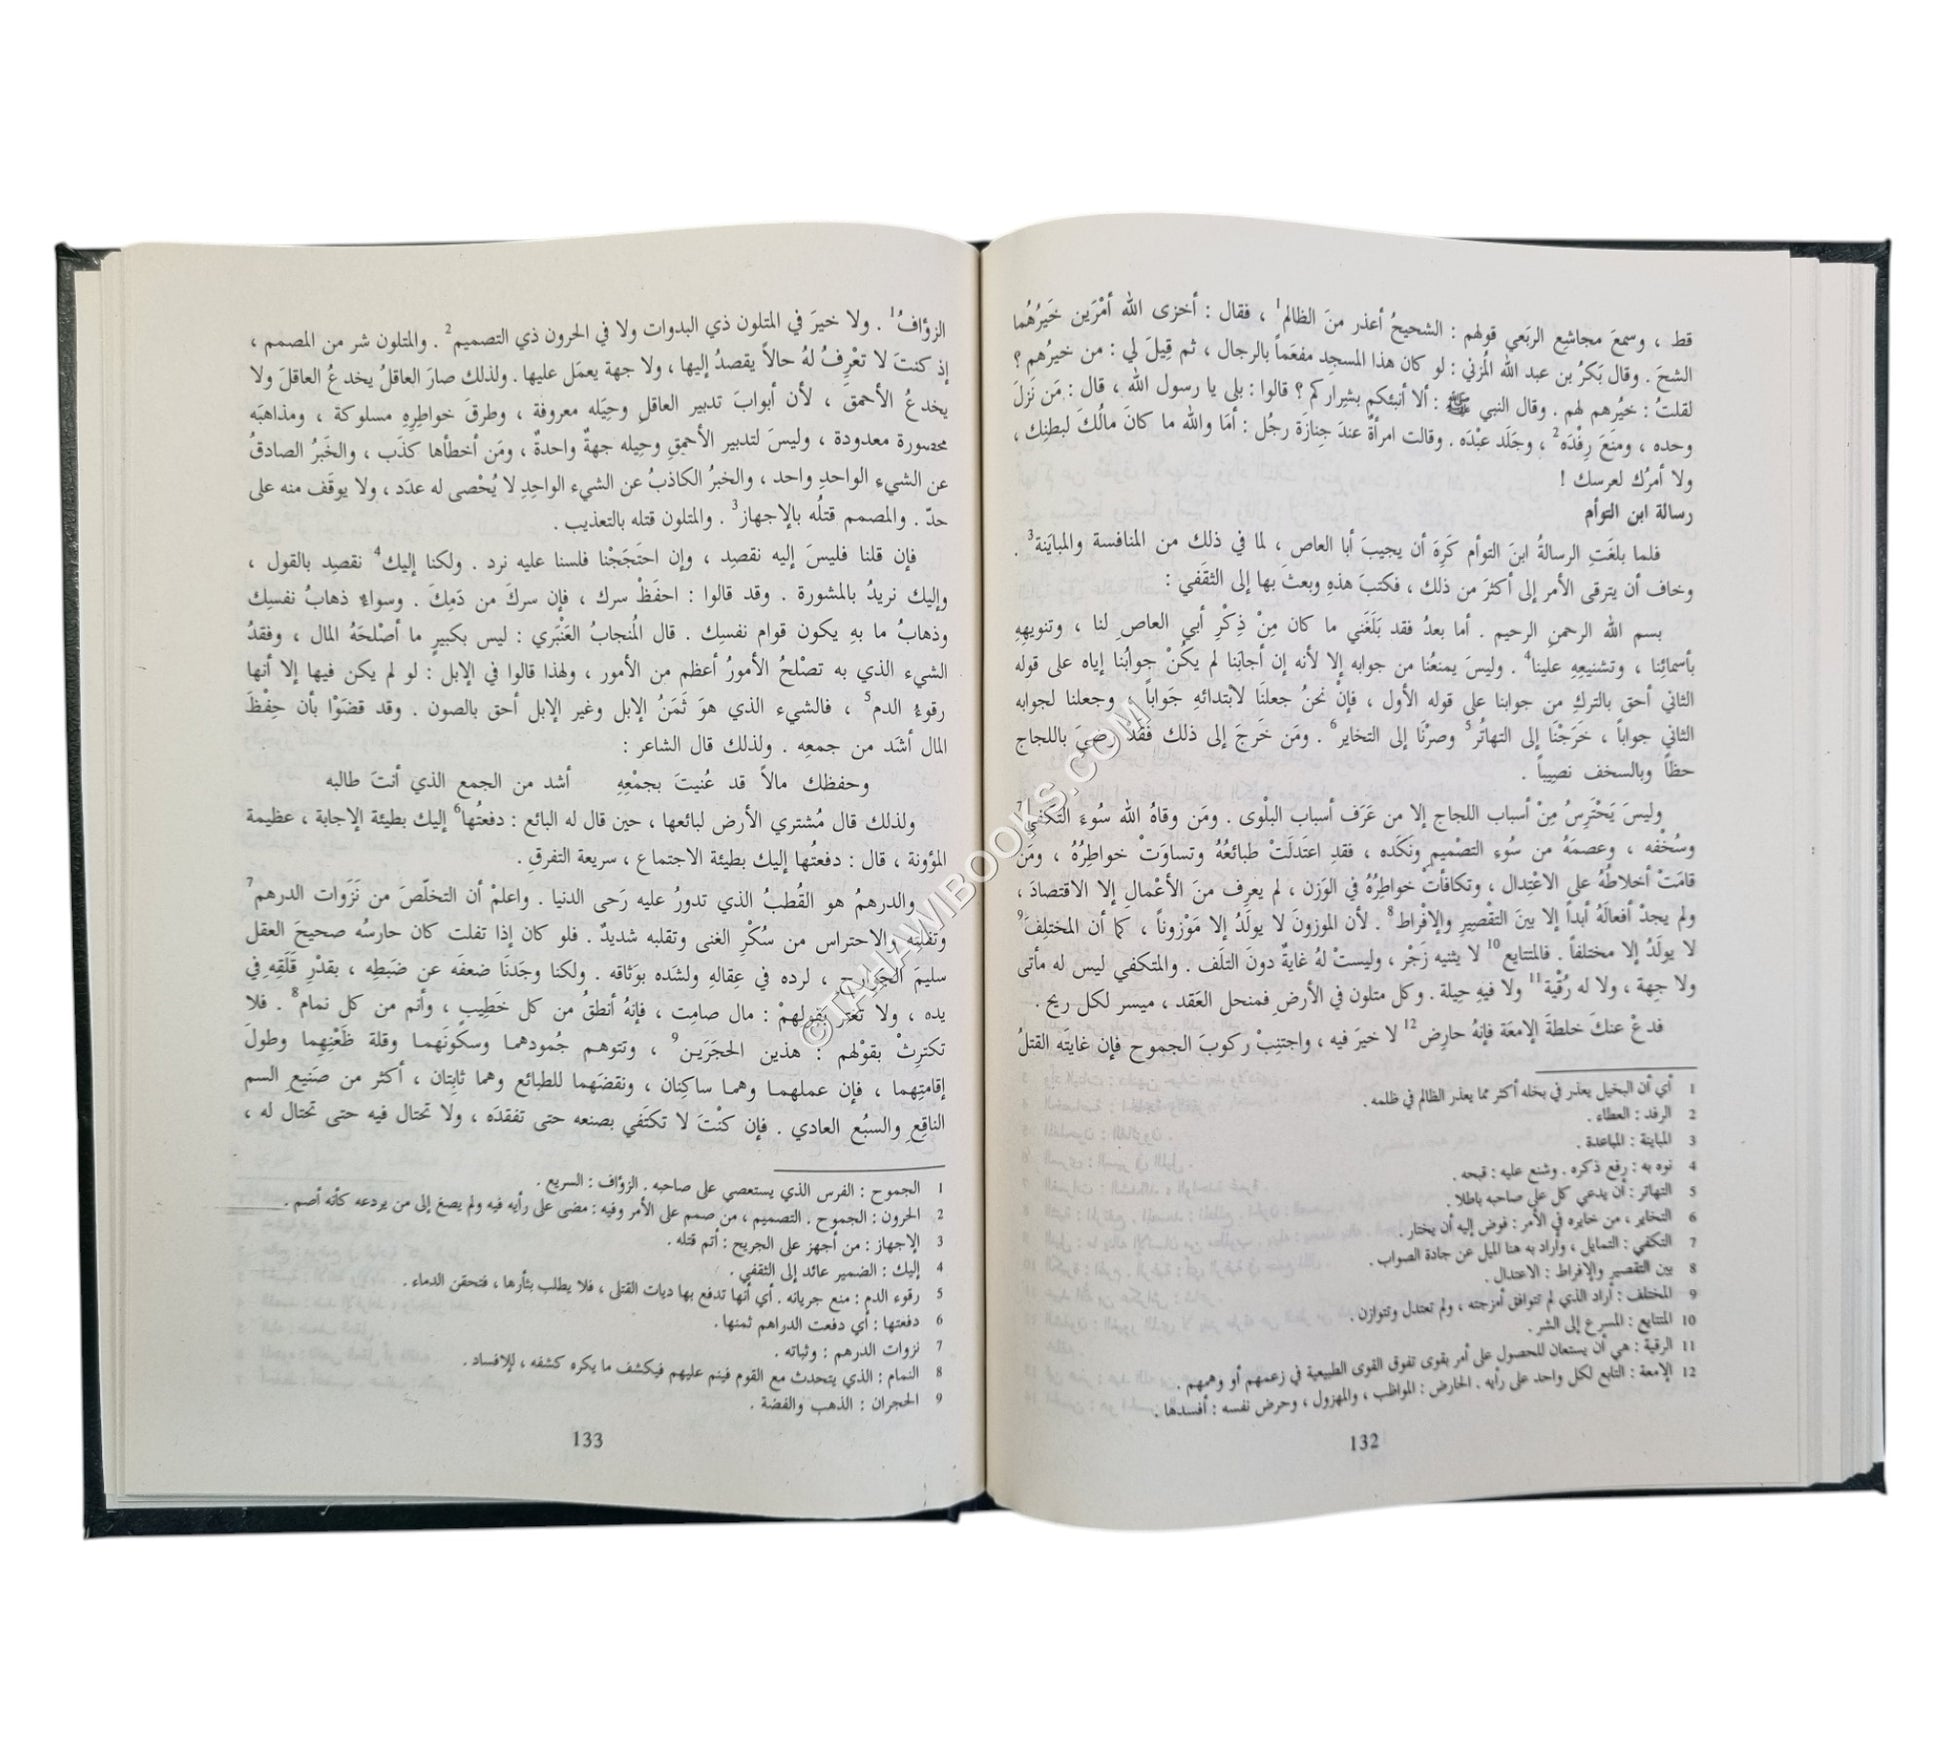 قط ، وسمعَ مجاشع الربَعي قولهم : الشحيحُ أعذر منَ الظالم1 ، فقال : أخزى الله أمْرَين خَيرُهُما
الشحَ . وقال بَكرُ بن عبد الله المُزني : لو كان هذا المسجِد مفعَماً بالرجال ، ثم قِيلَ لي : من خيرُهم ؟
لقلتُ : خيرُهم لهم . وقال النبي ﷺ : ألا أنبئكم بشِراركم ؟ قالوا : بلى يا رسول الله ، قال : مَن نَزلَ
وحده ، ومنَعَ رِفْدَه2 ، وجَلَد عبْدَه . وقالت امرأةٌ عندَ جِنازَة رجُل : أمَا والله ما كانَ مالُكَ لبطنِك ،
ولا أمرُك لعرسك !
رسالة ابن التوأم
فلما بلغَتِ الرسالةُ ابنَ التوأم كَرِهَ أن يجيبَ أبا العاص ، لما في ذلك من المنافسة والمبايَنة3 .
وخاف أن يترقى الأمر إلى أكثرَ من ذلك ، فكتبَ هذهِ وبعثَ بها إلى الثقَفي :
بسم الله الرحمنِ الرحيم . أما بعدُ فقد بَلَغَني ما كان مِنْ ذِكْرِ أبي العاصِ لنا ، وتنويههِ
بأسمائِنا ، وتشنيعِهِ علينا4 . وليسَ يمنعُنا من جوابه إلا لأنه إن أجابَنا لم يكُنْ جوابُنا إياه على قوله
الثاني أحق بالتركِ من جوابنا على قوله الأول ، فإنْ نحنُ جعلنَا لابتدائهِ جَواباً ، وجعلنا لجوابه
الثاني جواباً ، خَرَجْنَا إلى التهاتُر5 وصرْنَا إلى التخاير6 . ومَن خَرجَ إلى ذلك فقدْ رضيَ باللجاج
حظاً وبالسخف نصِيباً .
وليسَ يَحْتَرِسُ مِنْ أسباب اللجاج إلا من عَرَف أسباب البلْوى . ومَن وقاهُ الله سُوءَ التكفي7
وسُخْفه ، وعصمَهُ من سُوءِ التصْميمِ ونَكَده ، فقدِ اعتدَلَتْ طبائعُهُ وتساوَتْ خواطِرُهُ ، ومَن
قامَتْ أخلاطُهُ على الاعْتِدال ، وتكافأتْ خواطِرُهُ في الوَزن ، لم يعرِف منَ الأعْمالِ إلا الاقتصادَ ،
ولم يجدْ أفعالَهُ أبداً إلا بينَ التقْصِيرِ والإفْراط8 . لأن الموزونَ لا يولَدُ إلا مَوْزوناً ، كما أن المختلِفَ9
لا يولَدُ إلا مختلفاً . فالمتتايع10 لا يثنيه زَجْر ، وليستْ لهُ غايةٌ دونَ التلَف . والمتكفي ليس له مأتى
ولا جِهة ، ولا له رُقْية11 ولا فيهِ حِيلة . وكل متلون في الأرضِ فمنحل العَقد ، ميسر لكل ريح .
فدعْ عنكَ خلطةَ الإمعَة فإنهُ حارِض12 لا خيرَ فيه ، واجتنِبْ ركوبَ الجموح فإن غايتَه القتلُ
1 أي أن البخيل يعذر في بخله أكثر مما يعذر الظالم في ظلمه .
2 الرفد : العطاء .
3 المباينة : المباعدة .
4 نوه به : رفع ذكره . وشنع عليه : قبحه .
5 التهاتر : أن يدعي كل على صاحبه باطلا .
6 التخاير ، من خايره في الأمر : فوض إليه أن يختار .
7 التكفي : التمايل ، وأراد به هنا الميل عن جادة الصواب .
8 بين التقصير والإفراط : الاعتدال .
9 المختلف : أراد الذي لم تتوافق أمزجته ، ولم تعتدل وتتوازن .
10 المتتايع : المسرع إلى الشر .
11 الرقية : هي أن يستعان للحصول على أمر بقوى تفوق القوى الطبيعية في زعمهم أو وهمهم .
12 الإمعة : التابع لكل واحد على رأيه . الحارض : المواظب ، والمهزول ، وحرض نفسه : أفسدها .
132
الزؤافُ1 . ولا خيرَ في المتلون ذي البدوات ولا في الحرون ذي التصميم2 . والمتلون شر من المصمم ،
إذ كنتَ لا تعْرِفُ لهُ حالاً يقصدُ إليها ، ولا جهة يعمَل عليها . ولذلك صارَ العاقلُ يخدعُ العاقلَ ولا
يخدعُ الأحمقَ ، لأن أبوابَ تدبير العاقلِ وحِيَله معروفة ، وطرقَ خواطِرِهِ مسلوكة ، ومذاهبَه
محصورة معدودة ، وليسَ لتدبير الأحمقِ وحِيله جهةٌ واحدةٌ ، ومَن أخطأها كذَب ، والخَبرُ الصادقُ
عن الشيءِ الواحدِ واحد ، والخبرُ الكاذبُ عن الشيء الواحِدِ لا يُحْصى له عدَد ، ولا يوقَف منه على
حدّ . والمصمم قتلُه بالإجهاز3 . والمتلون قتله بالتعذيب .
فإن قلنا فليسَ إليه نقصِد ، وإن احتَجَجْنا فلسنا عليه نرد . ولكنا إليك4 نقصِد بالقول ،
وإليك نريدُ بالمشورة . وقد قالوا : احفَظْ سرك ، فإن سركَ من دَمِكَ . وسواءٌ ذهابُ نفسِك
وذهابُ ما بهِ يكون قوام نفسِك . قال المُنجابُ العَنْبَري : ليس بكبيرٍ ما أصْلحَهُ المال ، وفقدُ
الشيء الذي به تصْلحُ الأمورُ أعظم من الأمور ، ولهذا قالوا في الإبل : لو لم يكن فيها إلا أنها
رقوءُ الدم5 ، فالشيء الذي هوَ ثَمَنُ الإبل وغير الإبل أحق بالصون . وقد قضَوْا بأن حِفْظَ
المال أشَد من جمعِه . ولذلك قال الشاعر :
وحفظك مالاً قد عُنيتَ بجمْعِهِ أشد من الجمع الذي أنتَ طالبه
ولذلك قال مُشتري الأرض لبائعها ، حين قال له البائع : دفعتُها6 إليك بطيئة الإجابة ، عظيمة
المؤونة ، قال : دفعتُها إليك بطيئة الاجتماع ، سريعة التفرقِ .
والدرهمُ هو القُطبُ الذي تدورُ عليه رَحى الدنيا . واعلمْ أن التخلّصَ من نَزَوات الدرهم7
وتفلته والاحتراس من سُكْرِ الغنى وتقلبه شديدٌ . فلو كان إذا تفلت كان حارسُه صحيحَ العقل
سليمَ الجوارح ، لرده في عِقالهِ ولشده بوَثاقه . ولكنا وجَدنَا ضعفَه عن ضَبطِه ، بقدْرِ قَلَقِهِ في
يده ، ولا تغتر بقولهمْ : مال صامِت ، فإنهُ أنطقُ من كل خَطِيبٍ ، وأنم من كل نمام8 . فلا
تكترِثْ بقوْلهم : هذين الحجَرَين9 ، وتتوهم جُمودهما وسكونَهما وقلة ظَعْنِهِما وطولَ
إقامتِهما ، فإن عملهما وهما ساكِنان ، ونقضَهما للطبائع وهما ثابِتان ، أكثر من صَنيعِ السم
الناقِعِ والسبُع العادي . فإن كنْتَ لا تكتَفي بصنعه حتى تفقدَه ، ولا تحتال فيه حتى تحتال له ،
1 الجموح : الفرس الذي يستعصي على صاحبه . الزؤاف : السريع .
2 الحرون : الجموح . التصميم ، من صمم على الأمر وفيه : مضى على رأيه فيه ولم يصغ إلى من يردعه كأنه أصم .
3 الإجهاز : من أجهز على الجريح : أتم قتله .
4 إليك : الضمير عائد إلى الثقفي .
5 رقوء الدم : منع جريانه . أي أنها تدفع بها ديات القتلى ، فلا يطلب بثأرها ، فتحقن الدماء .
6 دفعتها : أي دفعت الدراهم ثمنها .
7 نزوات الدرهم : وثباته .
8 النمام : الذي يتحدث مع القوم فينم عليهم فيكشف ما يكره كشفه ، للإفساد .
9 الحجران : الذهب والفضة .
133
©TAHAWIBOOKS.COM